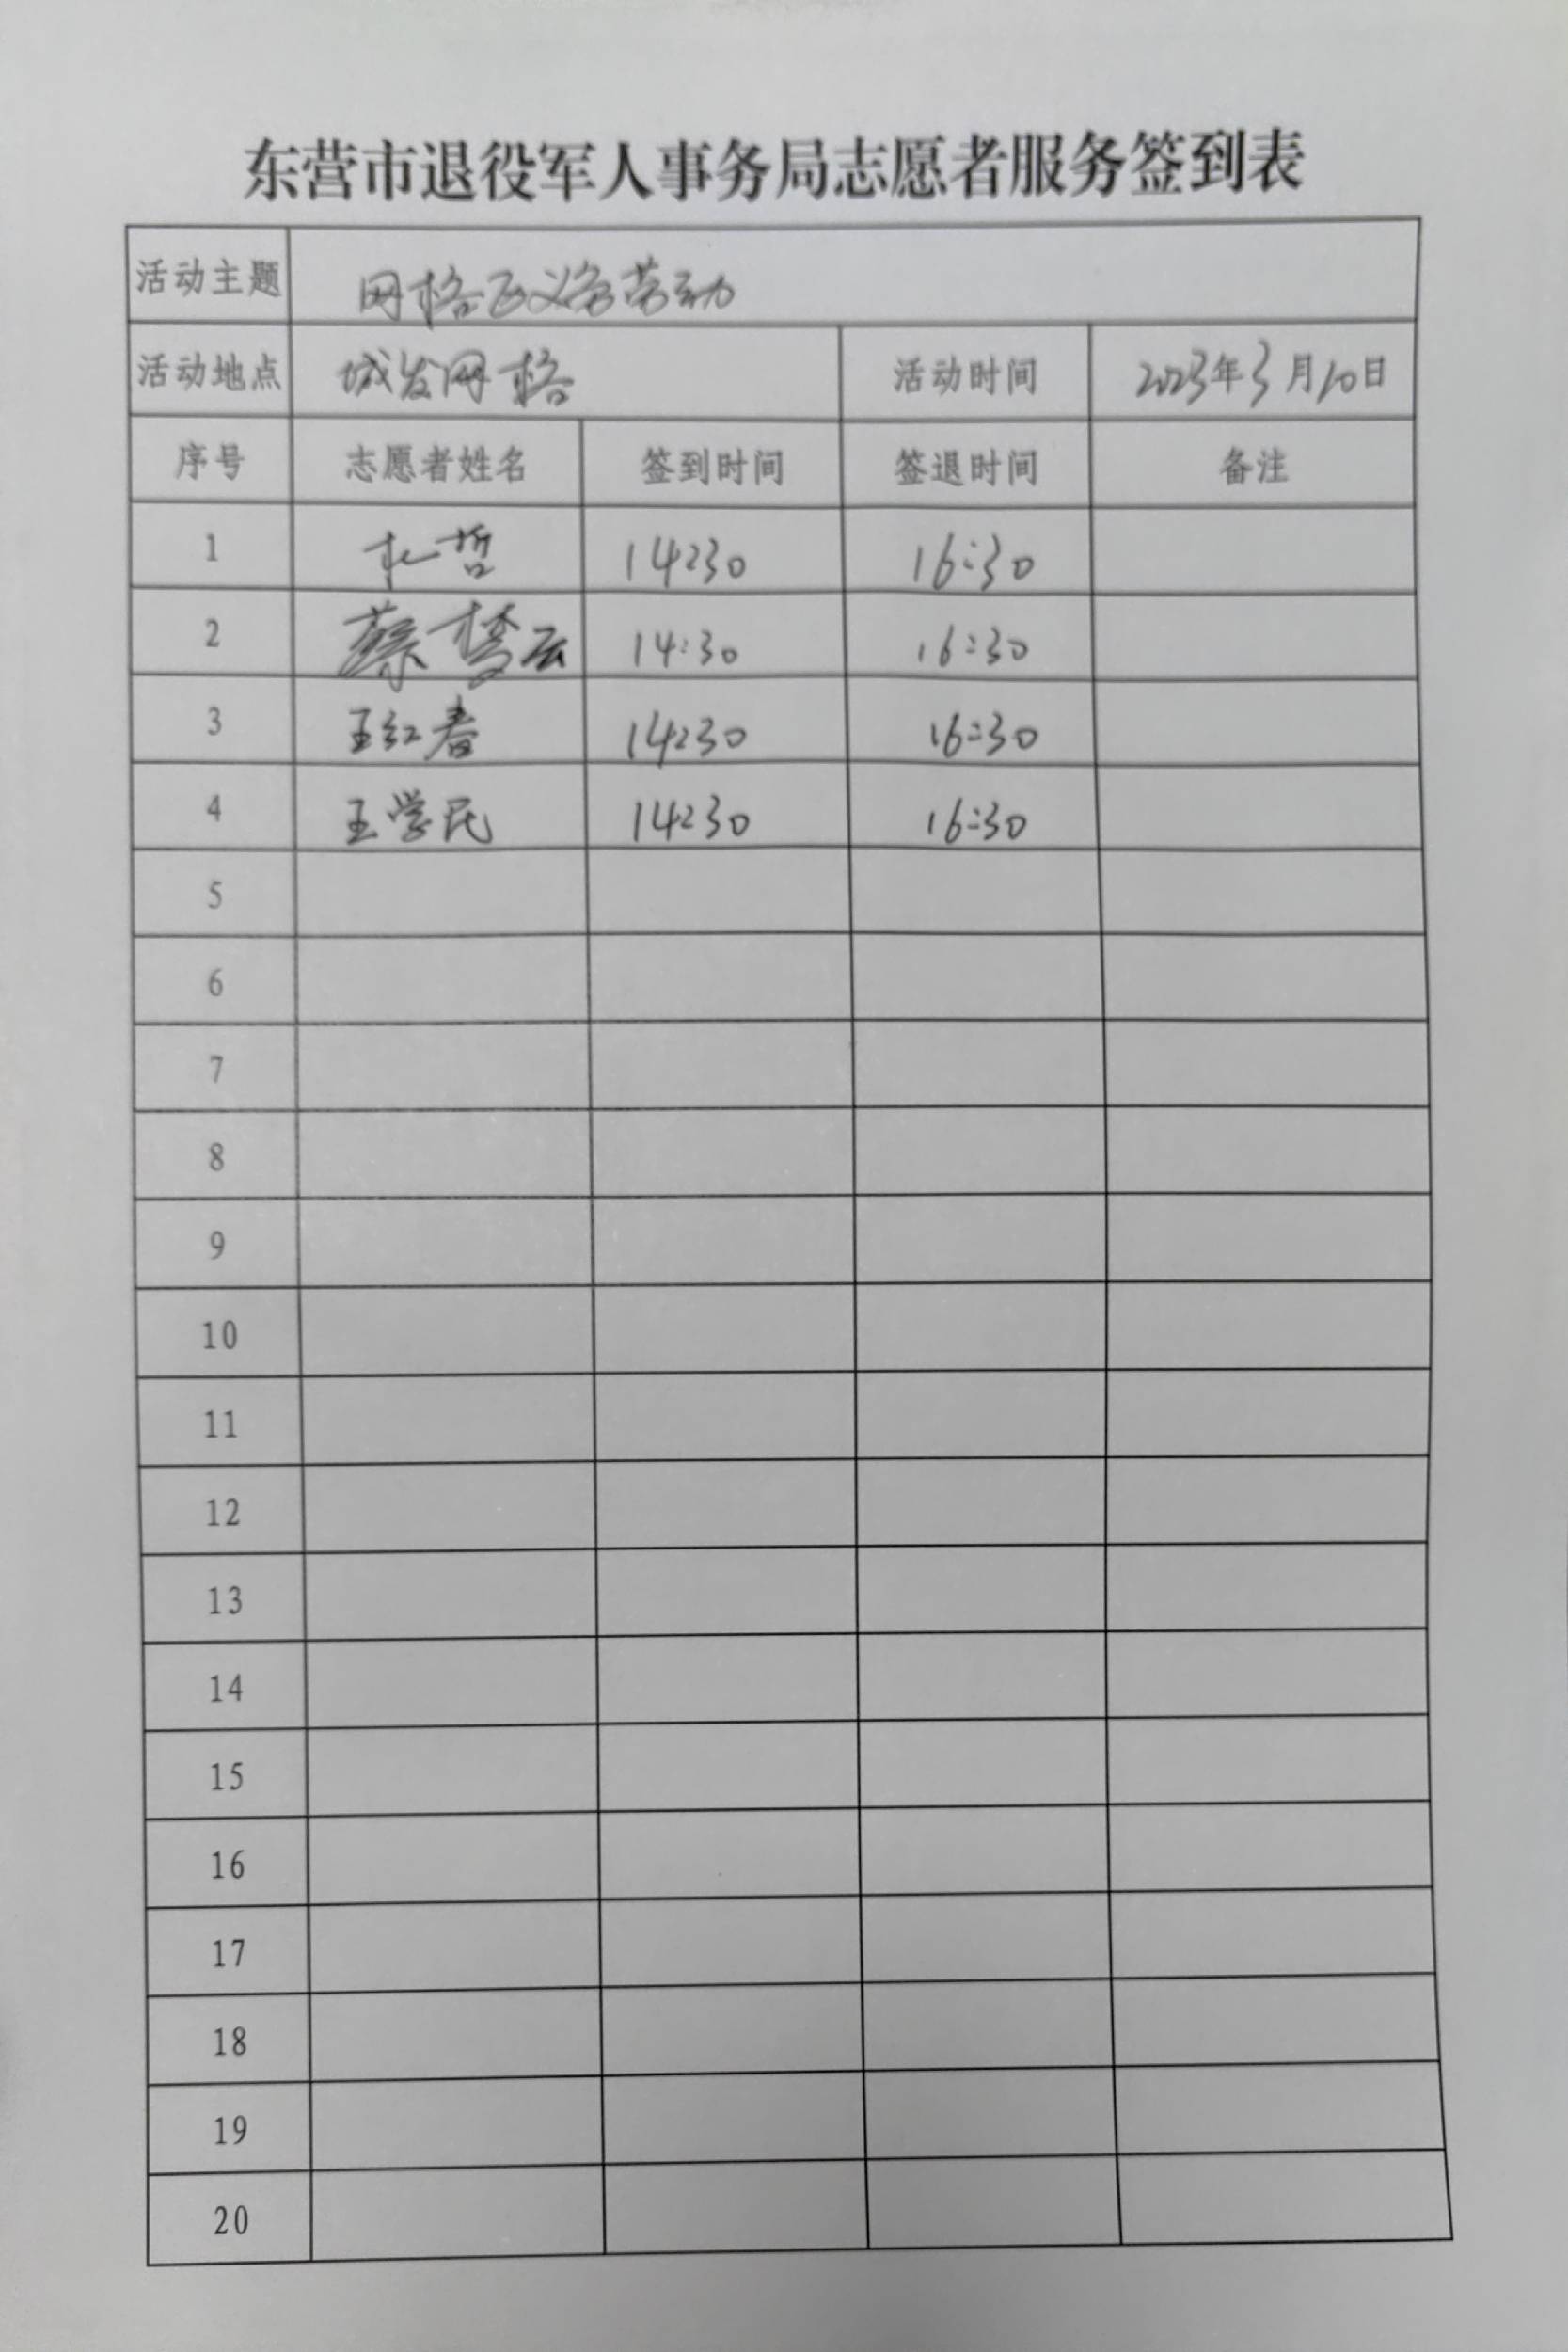 东营市退役军人事务局志愿者服务签到表
活动主题 网格区义务劳动
活动地点 城发网格 活动时间 2023年3月10日
序号 志愿者姓名 签到时间 签退时间 备注
1 杜哲 14:30 16:30
2 蔡梦云 14:30 16:30
3 王红春 14:30 16:30
4 王学民 14:30 16:30
5
6
7
8
9
10
11
12
13
14
15
16
17
18
19
20